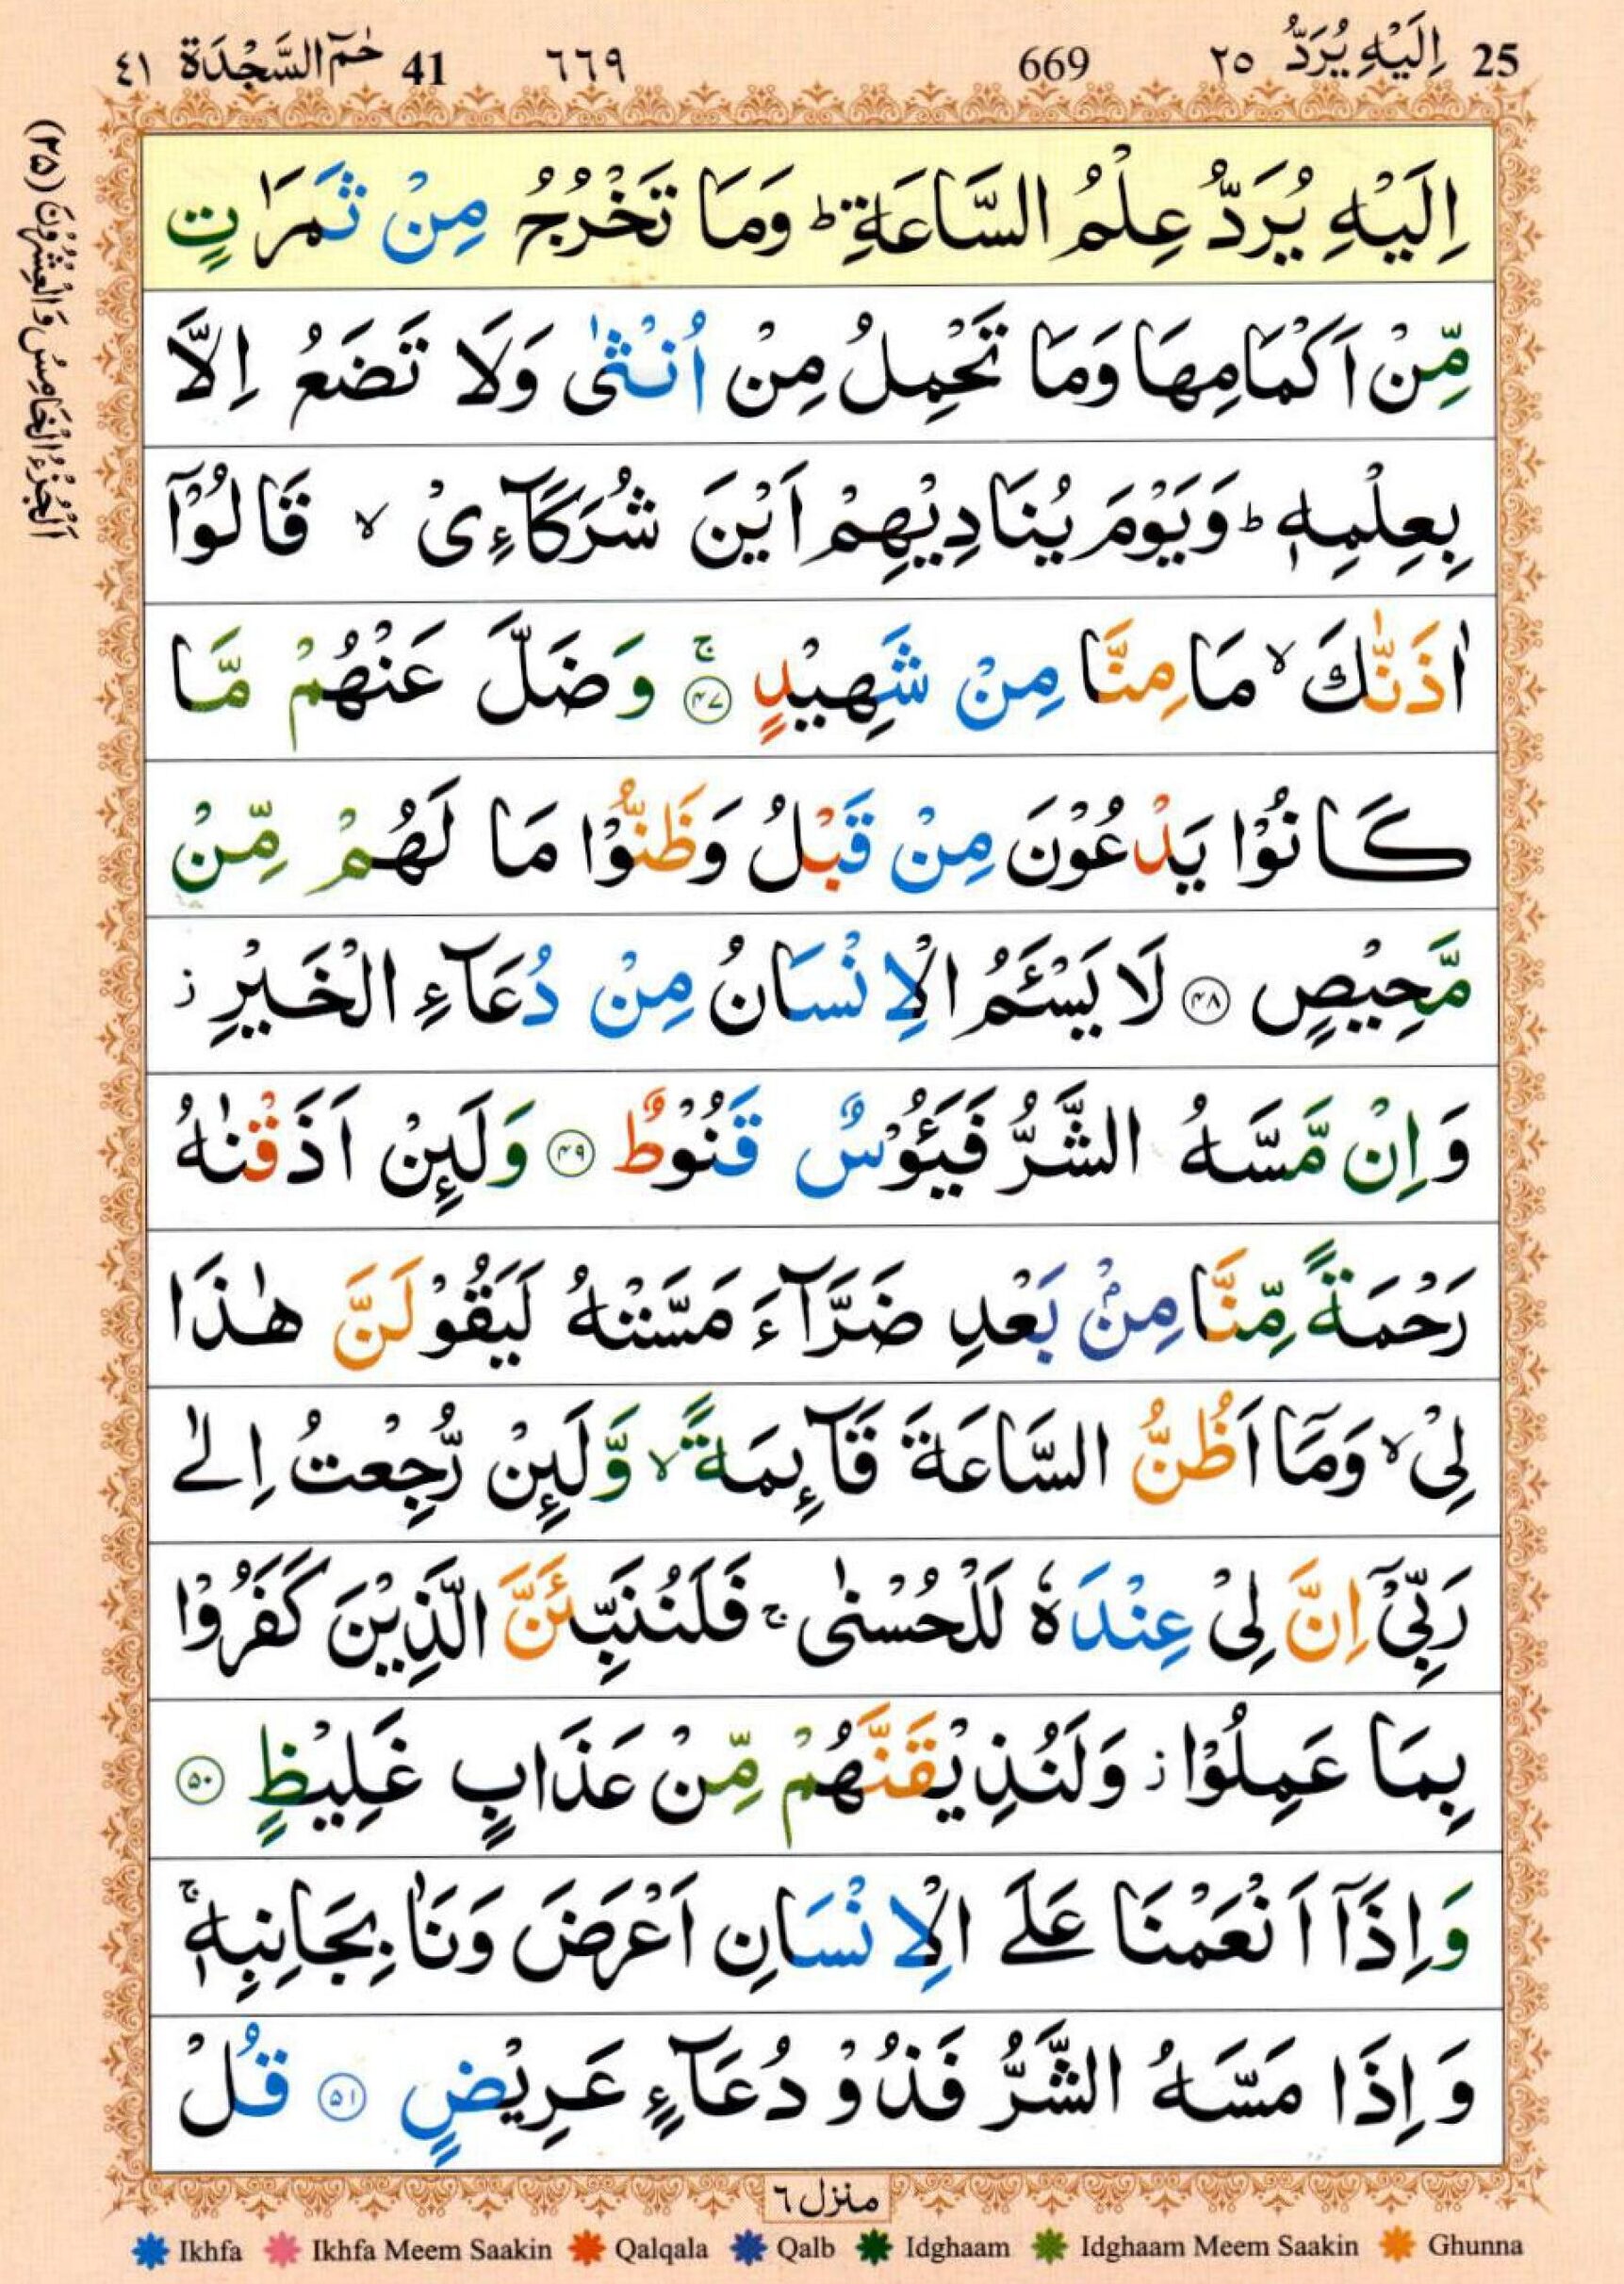 25 اِلَيْهِ يُرَدُّ ٢٥ 669 ٦٦٩ 41 حٰمٓ السَّجْدَة ٤١
اِلَيْهِ يُرَدُّ عِلْمُ السَّاعَةِ ؕ وَمَا تَخْرُجُ مِنْ ثَمَرٰتٍ
مِّنْ اَكْمَامِهَا وَمَا تَحْمِلُ مِنْ اُنْثٰى وَلَا تَضَعُ اِلَّا
بِعِلْمِهٖ ؕ وَيَوْمَ يُنَادِيْهِمْ اَيْنَ شُرَكَآءِىْ ۙ قَالُوْٓا
اٰذَنّٰكَ ۙ مَا مِنَّا مِنْ شَهِيْدٍ ۚ ﴿۴۷﴾ وَضَلَّ عَنْهُمْ مَّا
كَانُوْا يَدْعُوْنَ مِنْ قَبْلُ وَظَنُّوْا مَا لَهُمْ مِّنْ
مَّحِيْصٍ ﴿۴۸﴾ لَا يَسْـَٔمُ الْاِنْسَانُ مِنْ دُعَآءِ الْخَيْرِ ز
وَاِنْ مَّسَّهُ الشَّرُّ فَيَـُٔوْسٌ قَنُوْطٌ ﴿۴۹﴾ وَلَئِنْ اَذَقْنٰهُ
رَحْمَةً مِّنَّا مِنْۢ بَعْدِ ضَرَّآءَ مَسَّتْهُ لَيَقُوْلَنَّ هٰذَا
لِىْ ۙ وَمَآ اَظُنُّ السَّاعَةَ قَآئِمَةً ۙ وَّلَئِنْ رُّجِعْتُ اِلٰى
رَبِّىْٓ اِنَّ لِىْ عِنْدَهٗ لَلْحُسْنٰى ۚ فَلَنُنَبِّئَنَّ الَّذِيْنَ كَفَرُوْا
بِمَا عَمِلُوْا ز وَلَنُذِيْقَنَّهُمْ مِّنْ عَذَابٍ غَلِيْظٍ ﴿۵۰﴾
وَاِذَآ اَنْعَمْنَا عَلَى الْاِنْسَانِ اَعْرَضَ وَنَاٰ بِجَانِبِهٖ ۚ
وَاِذَا مَسَّهُ الشَّرُّ فَذُوْ دُعَآءٍ عَرِيْضٍ ﴿۵۱﴾ قُلْ
منزل ٦
Ikhfa Ikhfa Meem Saakin Qalqala Qalb Idghaam Idghaam Meem Saakin Ghunna
اَلْجُزْءُ الْخَامِسُ وَالْعِشْرُوْنَ (۲۵)